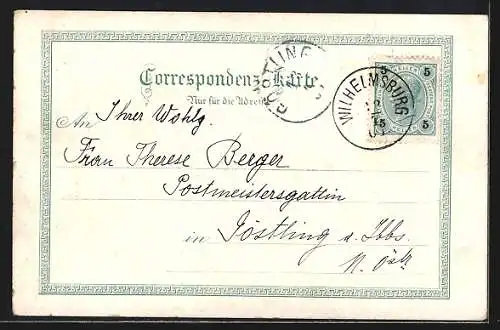 Correspondenz-Karte
Nur für die Adresse
WILHELMSBURG
5 5
5 5
An Ihrer Wohlg.
Frau Therese Berger
Postmeistersgattin
in Göstling a. Ybbs.
N. Östr.